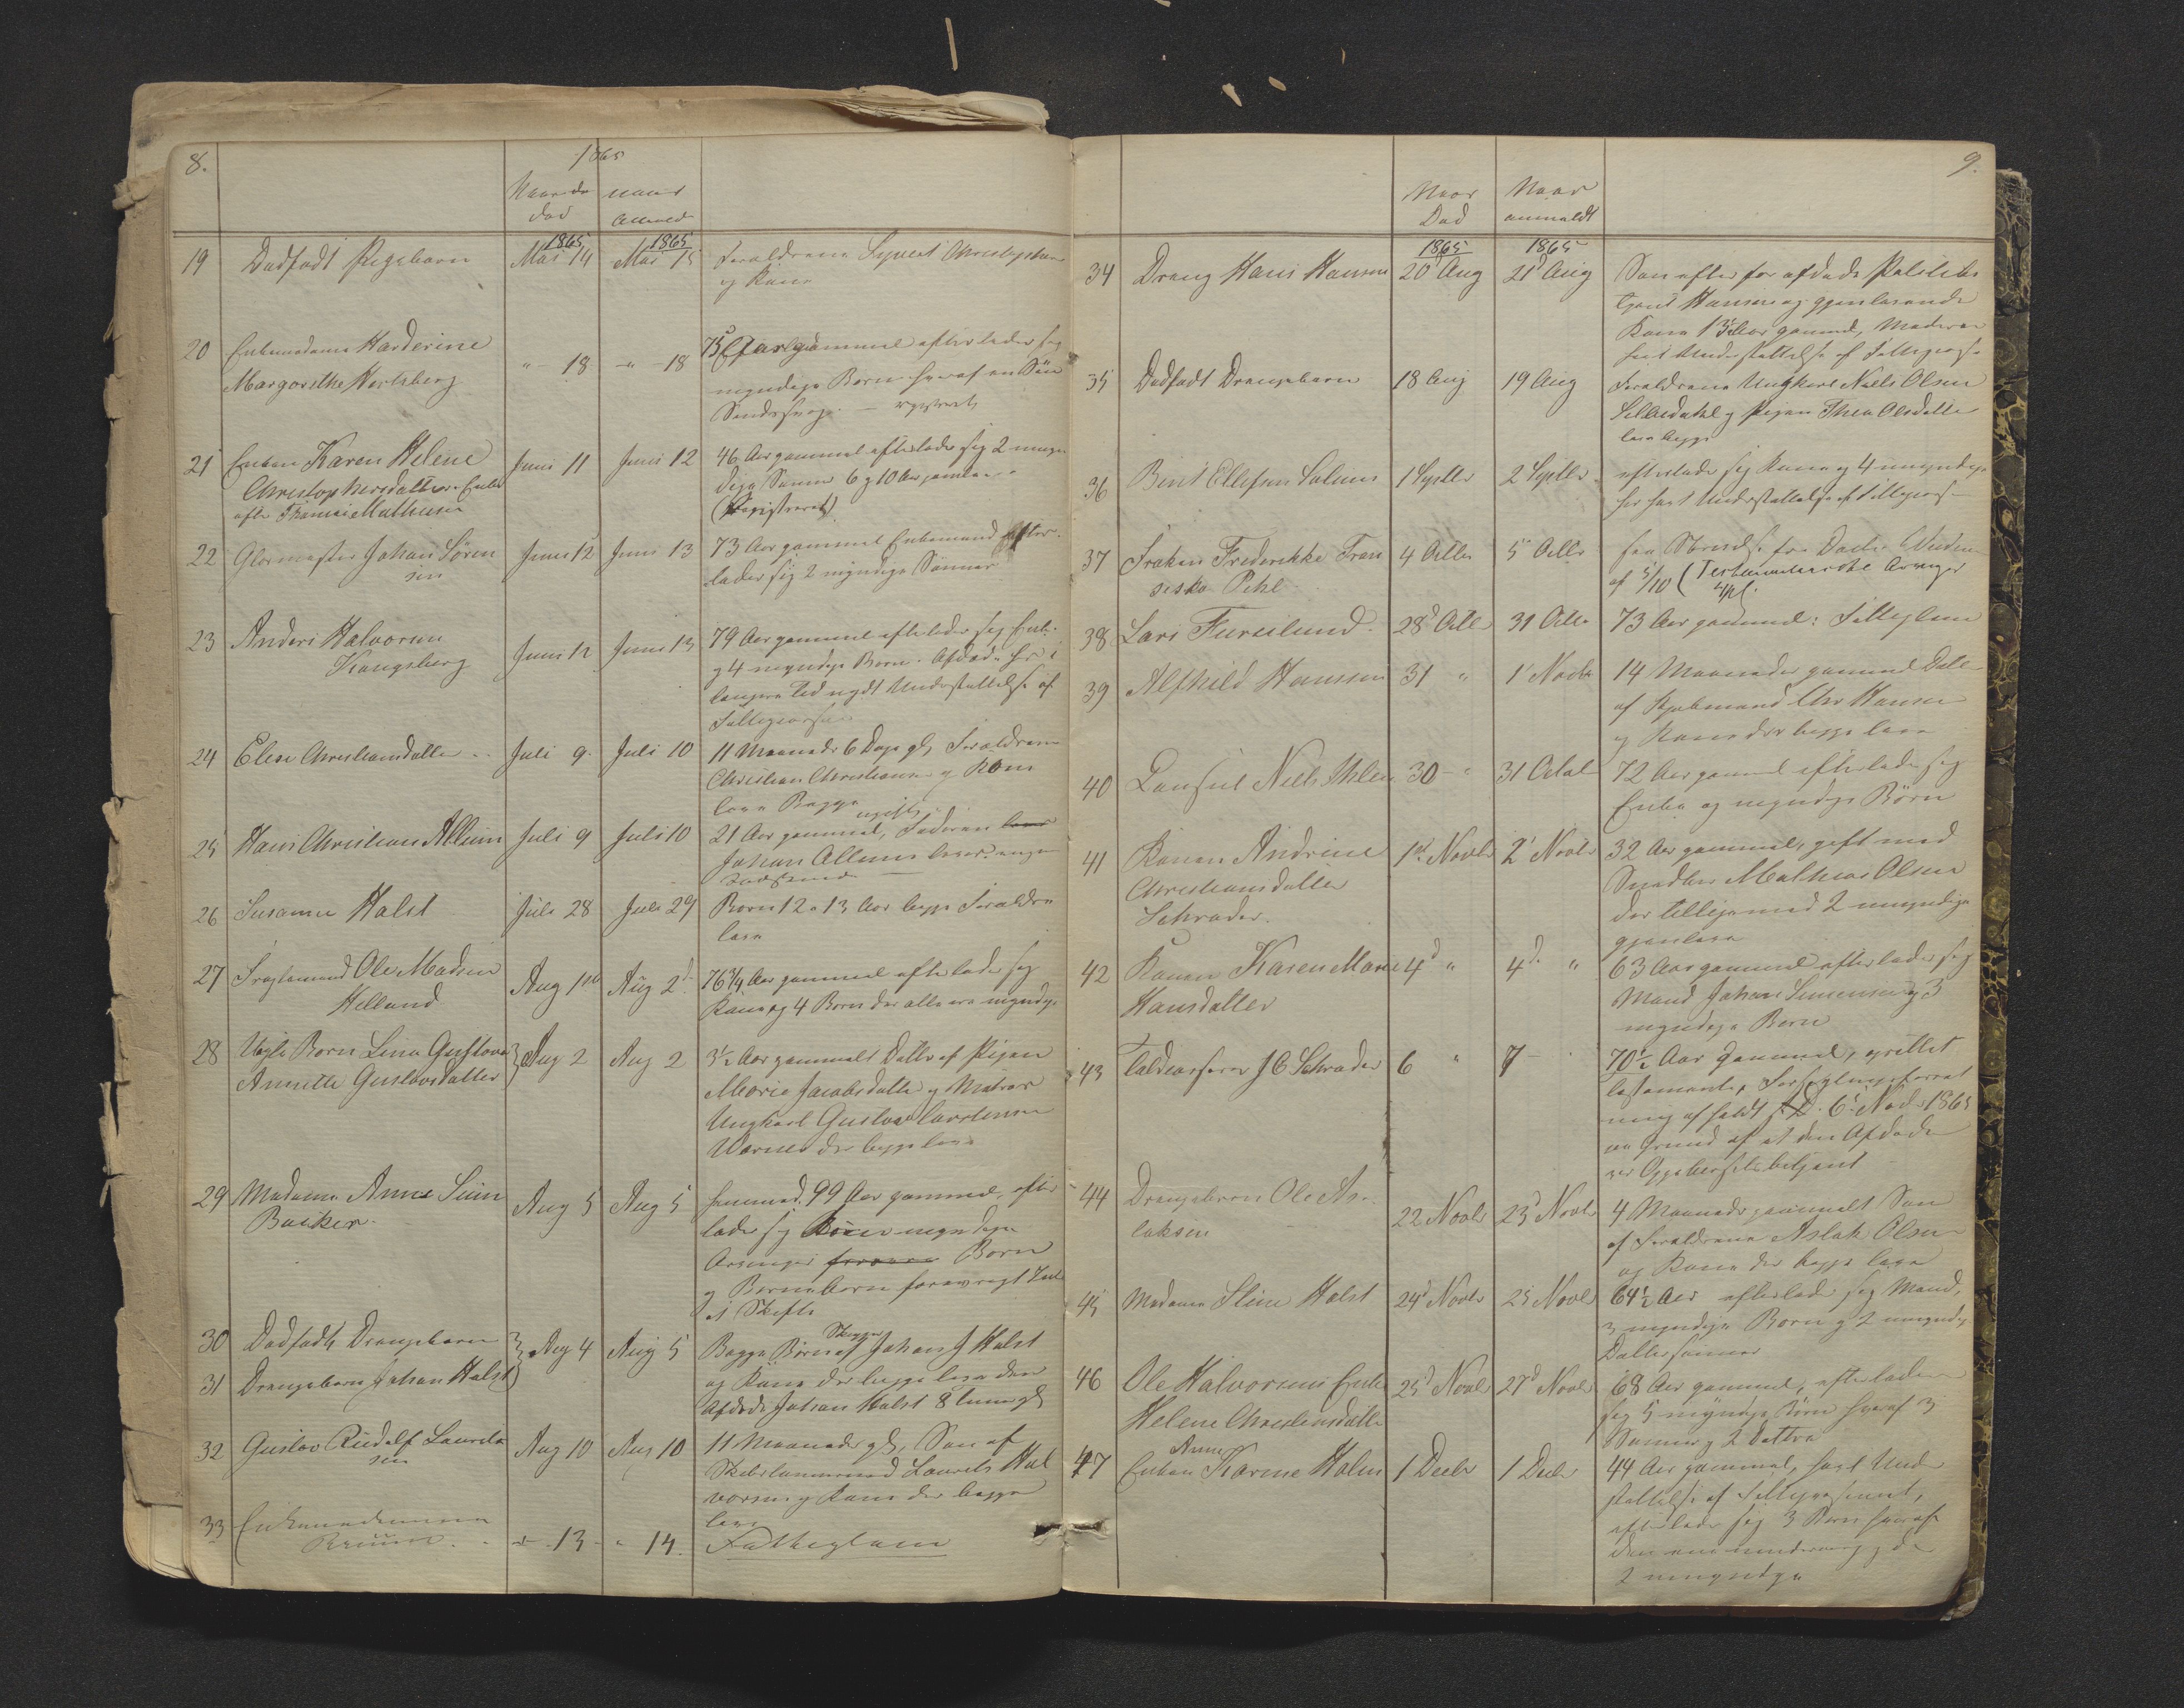 8.
1865
Naar
død
naar
anmeld
1865
1865
19 Dødfødt Pigebarn Mai 14 Mai 15 Forældrene Syvert Christophersen
og Kone
20 Enkemadame Harderine
Margarethe Herlsberg " 18 " 18 75 Aar gammel efterlader sig
myndige Børn hvoraf en Søn
Sindssvag. — registreret
21 Enken Karen Helene Juni 11 Juni 12 46 Aar gammel efterlader sig 2 umyn
Christophersdatter. Enke dige Sønner 6 og 10 Aar gamle
efter Thomas Mathisen (Registreret)
22 Glarmester Johan Sören Juni 12 Juni 13 73 Aar gammel Enkemand efter-
sen lader sig 2 myndige Sønner
23 Anders Halvorsen
Kongsberg Juni 12 Juni 13 79 Aar gammel efterlader sig Enke
og 4 myndige Børn. Afdøde har i
længere Tid nydt Understøttelse af
Fattigvæsenet
24 Elise Christiansdatter Juli 9. Juli 10 11 Maaneder 6 Dage gl, Forældrene
Christian Christiansen og Kone
leve Begge
25 Hans Christian Allum Juli 9 Juli 10 21 Aar gammel, ugift, Faderen
Johan Allum lever. ingen
26 Susanne Holst Juli 28 Juli 29 Barn 12 a 13 Aar begge Forældre
leve
27 Fragtemand Ole Madsen
Helland Aug 1ste Aug 2d 76 3/4 Aar gammel efterlader sig
Kone og 4 Børn der alle ere myndige
28 Uægte Barn Lina Gustava
Annette Gustavsdatter Aug 2 Aug 2 3 1/2 Aar gammelt Datter af Pigen
Maria Jacobsdatter og Matros
Ungkarl Gustav Carstensen
Warnes der begge leve
29 Madame Anne Siim
Backer. Aug 5 Aug 5 99 Aar gammel, efter
lader sig myndige
Arvinger Børn
og Børnebørn
Skifte
30 Dødfødt Drengebarn Aug 4 Aug 5 Begge Børn af Skipper Johan J Holst
31 Drengebarn Johan Holst og Kone der begge leve den
Afdøde Johan Holst 8 Timer gl
32 Gustav Rudolf Laurits
sen Aug 10 Aug 10 11 Maaneder gl, Søn af
Skibstømmermand Laurits Hal
vorsen og Kone der begge
leve
33 Enkemadamme
Bruun " 13 " 14. Fattiglem
9.
Naar
Død
Naar
anmeldt
1865
1865
34 Dreng Hans Hansen 20d Aug 21d Aug Søn efter for afdøde Politibe
tjent Hansen og gjenlevende
Kone 13 1/2 Aar gammel, Moderen
har Understøttelse af Fattigvæse
35 Dødfødt Drengebarn 18 Aug 19 Aug Forældrene Ungkarl Niels Olsen
Lillesdahl og Pigen Thea Olsdatter
leve begge
36 Berit Ellefsen Solum 1 Septbr 2 Septbr efterlader sig Kone og 4 umyndige
har havt Understøttelse af Fattigvæse
37 Frøken Frederikke Fran 4 Octbr 5 Octbr
siska Pihl af 5/10 (Testamentariske Arvinger
38 Lars Furulund. 28d Octb 31 Octbr 73 Aar gammel: Fattiglem
39 Alfhild Hanssen 31 " 1 Novbr 14 Maaneder gammel Datter
af Kjøbmand Chr Hansen
og Kone der begge leve
40 Consul Niels Ihlen 30 " 31 Octob 72 Aar gammel efterlader sig
Enke og myndige Børn
41 Konen Andrine 1ste Novbr 2 Novbr 32 Aar gammel, gift med
Christiansdatter Snedker Mathias Olsen
Schrøder. der tilligemed 2 umyndige
gjenleve
42 Konen Karen Marie 4d " 4d " 63 Aar gammel efterlader sig
Hansdatter Mand Johan Simensen og 3
myndige Børn
43 Toldkasserer J C Schrøder 6 " 7 - 70 1/2 Aar gammel, oprettet
Testamente, Forseglingsforret
ning afholdt d. 6 Novbr 1865
paa Grund af at den Afdøde
var Oppebørselsbetjent
44 Drengebarn Ole As
laksen 22 Novbr 23d Novbr 4 Maaneder gammelt Søn
af Forældrene Aslak Olsen
og Kone der begge leve
45 Madame Stine Holst 24d Novbr 25 Novbr 64 1/2 Aar efterlader sig Mand,
3 myndige Børn og 2 umyndige
Dattersønner
46 Ole Halvorsens Enke 25d Novbr 27d Novbr 68 Aar gammel, efterlader
Helene Christensdatter sig 5 myndige Børn hvoraf 3
Sønner og 2 Døttre
47 Enken Anne Karine Holm 1 Decbr 1 Decbr 44 Aar gammel, havt Under
støttelse af Fattigvæsenet,
efterlader sig 3 Børn hvoraf
den ene mindreaarig og de
2 myndige